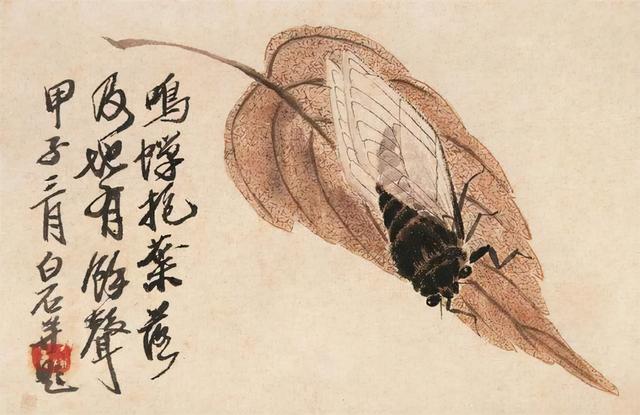 鳴蟬抱葉落
及地有餘聲
甲子三月白石并題